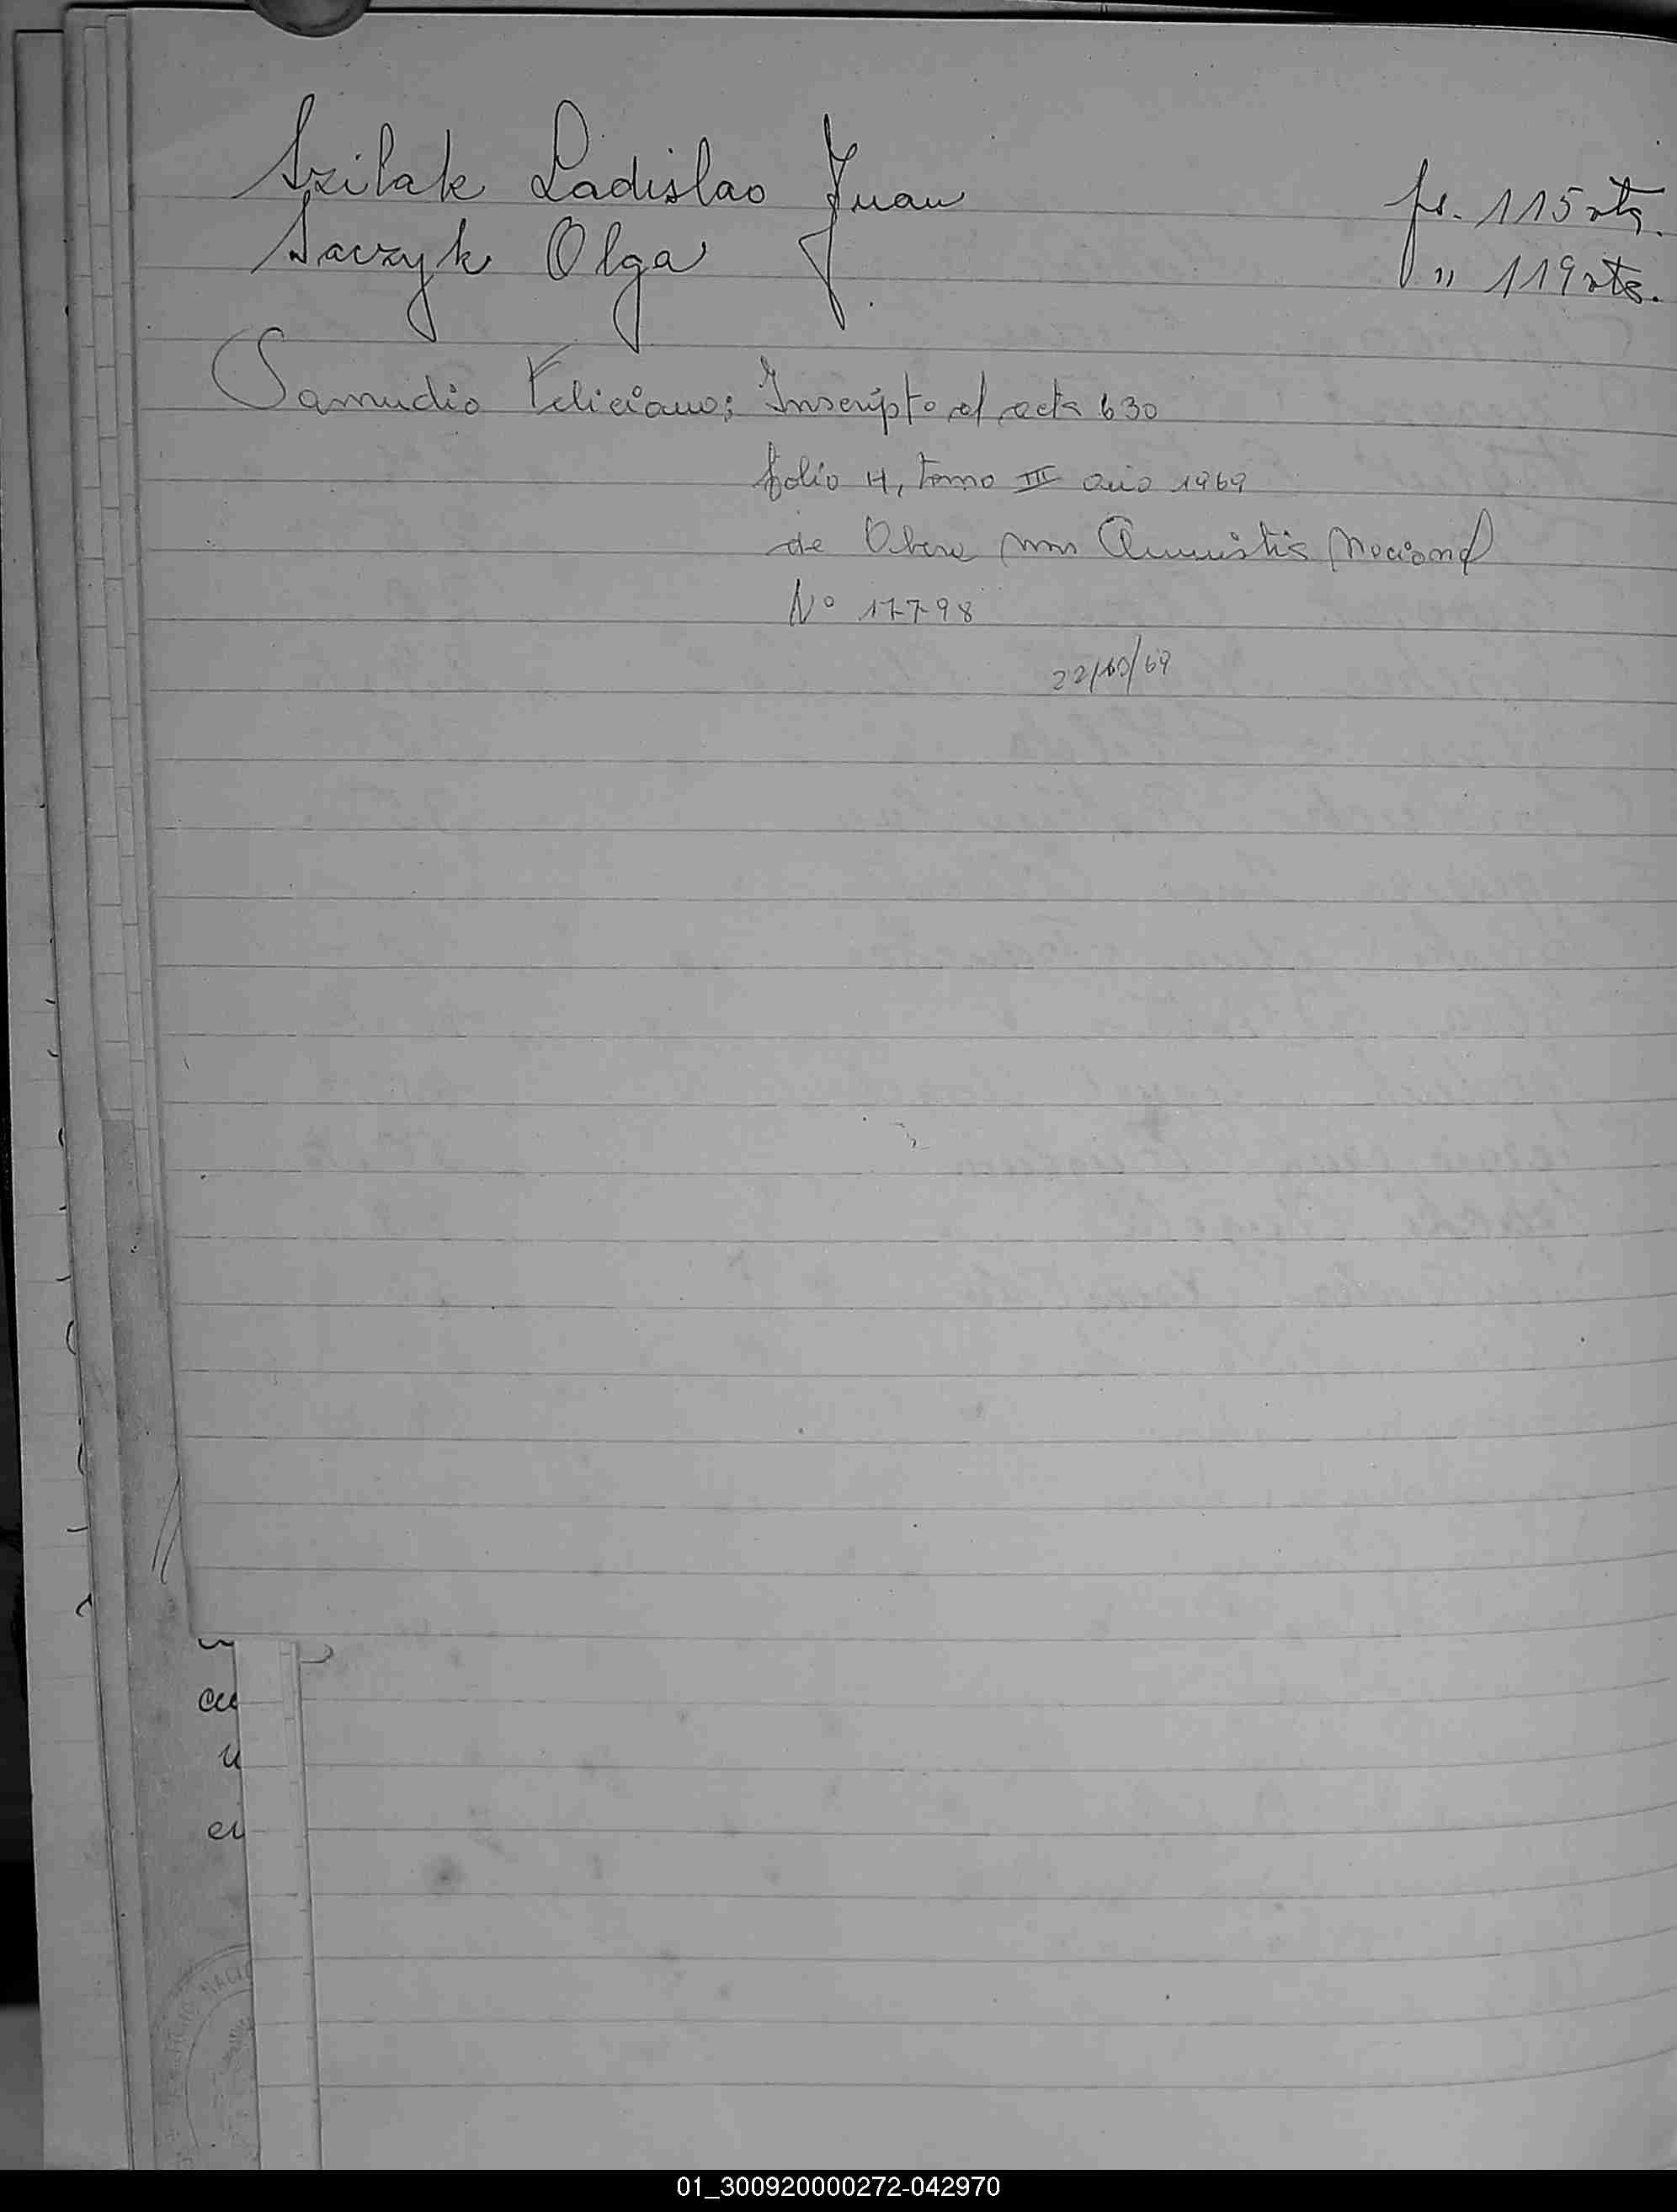 Szilak Ladislao Juan fs. 115 vta.
Saczyk Olga " 119 vta.
Samudio Feliciano: Inscripto al acta 630
folio 4, tomo III año 1969
de Obera Amnistia Nacional
Nº 17798
22/10/69
cu
u
eu
NACIO
01_300920000272-042970